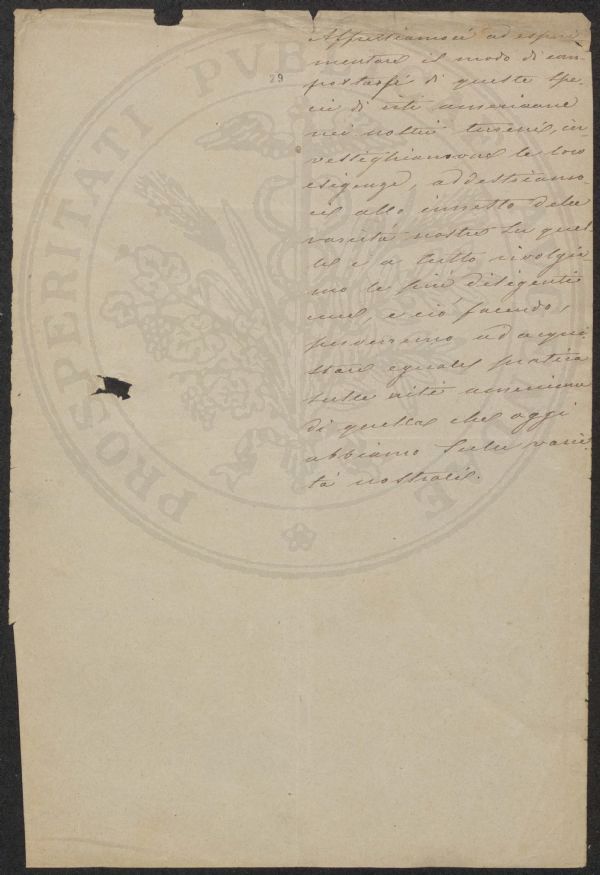 29
Affrettiamoci ad esperi
mentare il modo di com
portarsi di queste spe-
cie di viti americane
nei nostri terreni, in
vestighiamone le loro
esigenze, addestriamo-
ci allo innesto delle
varietà nostre su quel
le e a tutto rivolgia
mo le più diligenti
cure, e ciò facendo,
perverremo ad acqui
stare eguale pratica
sulle viti americane
di quella che oggi
abbiamo sulle varie
tà nostrali.
PROSPERITATI PVB